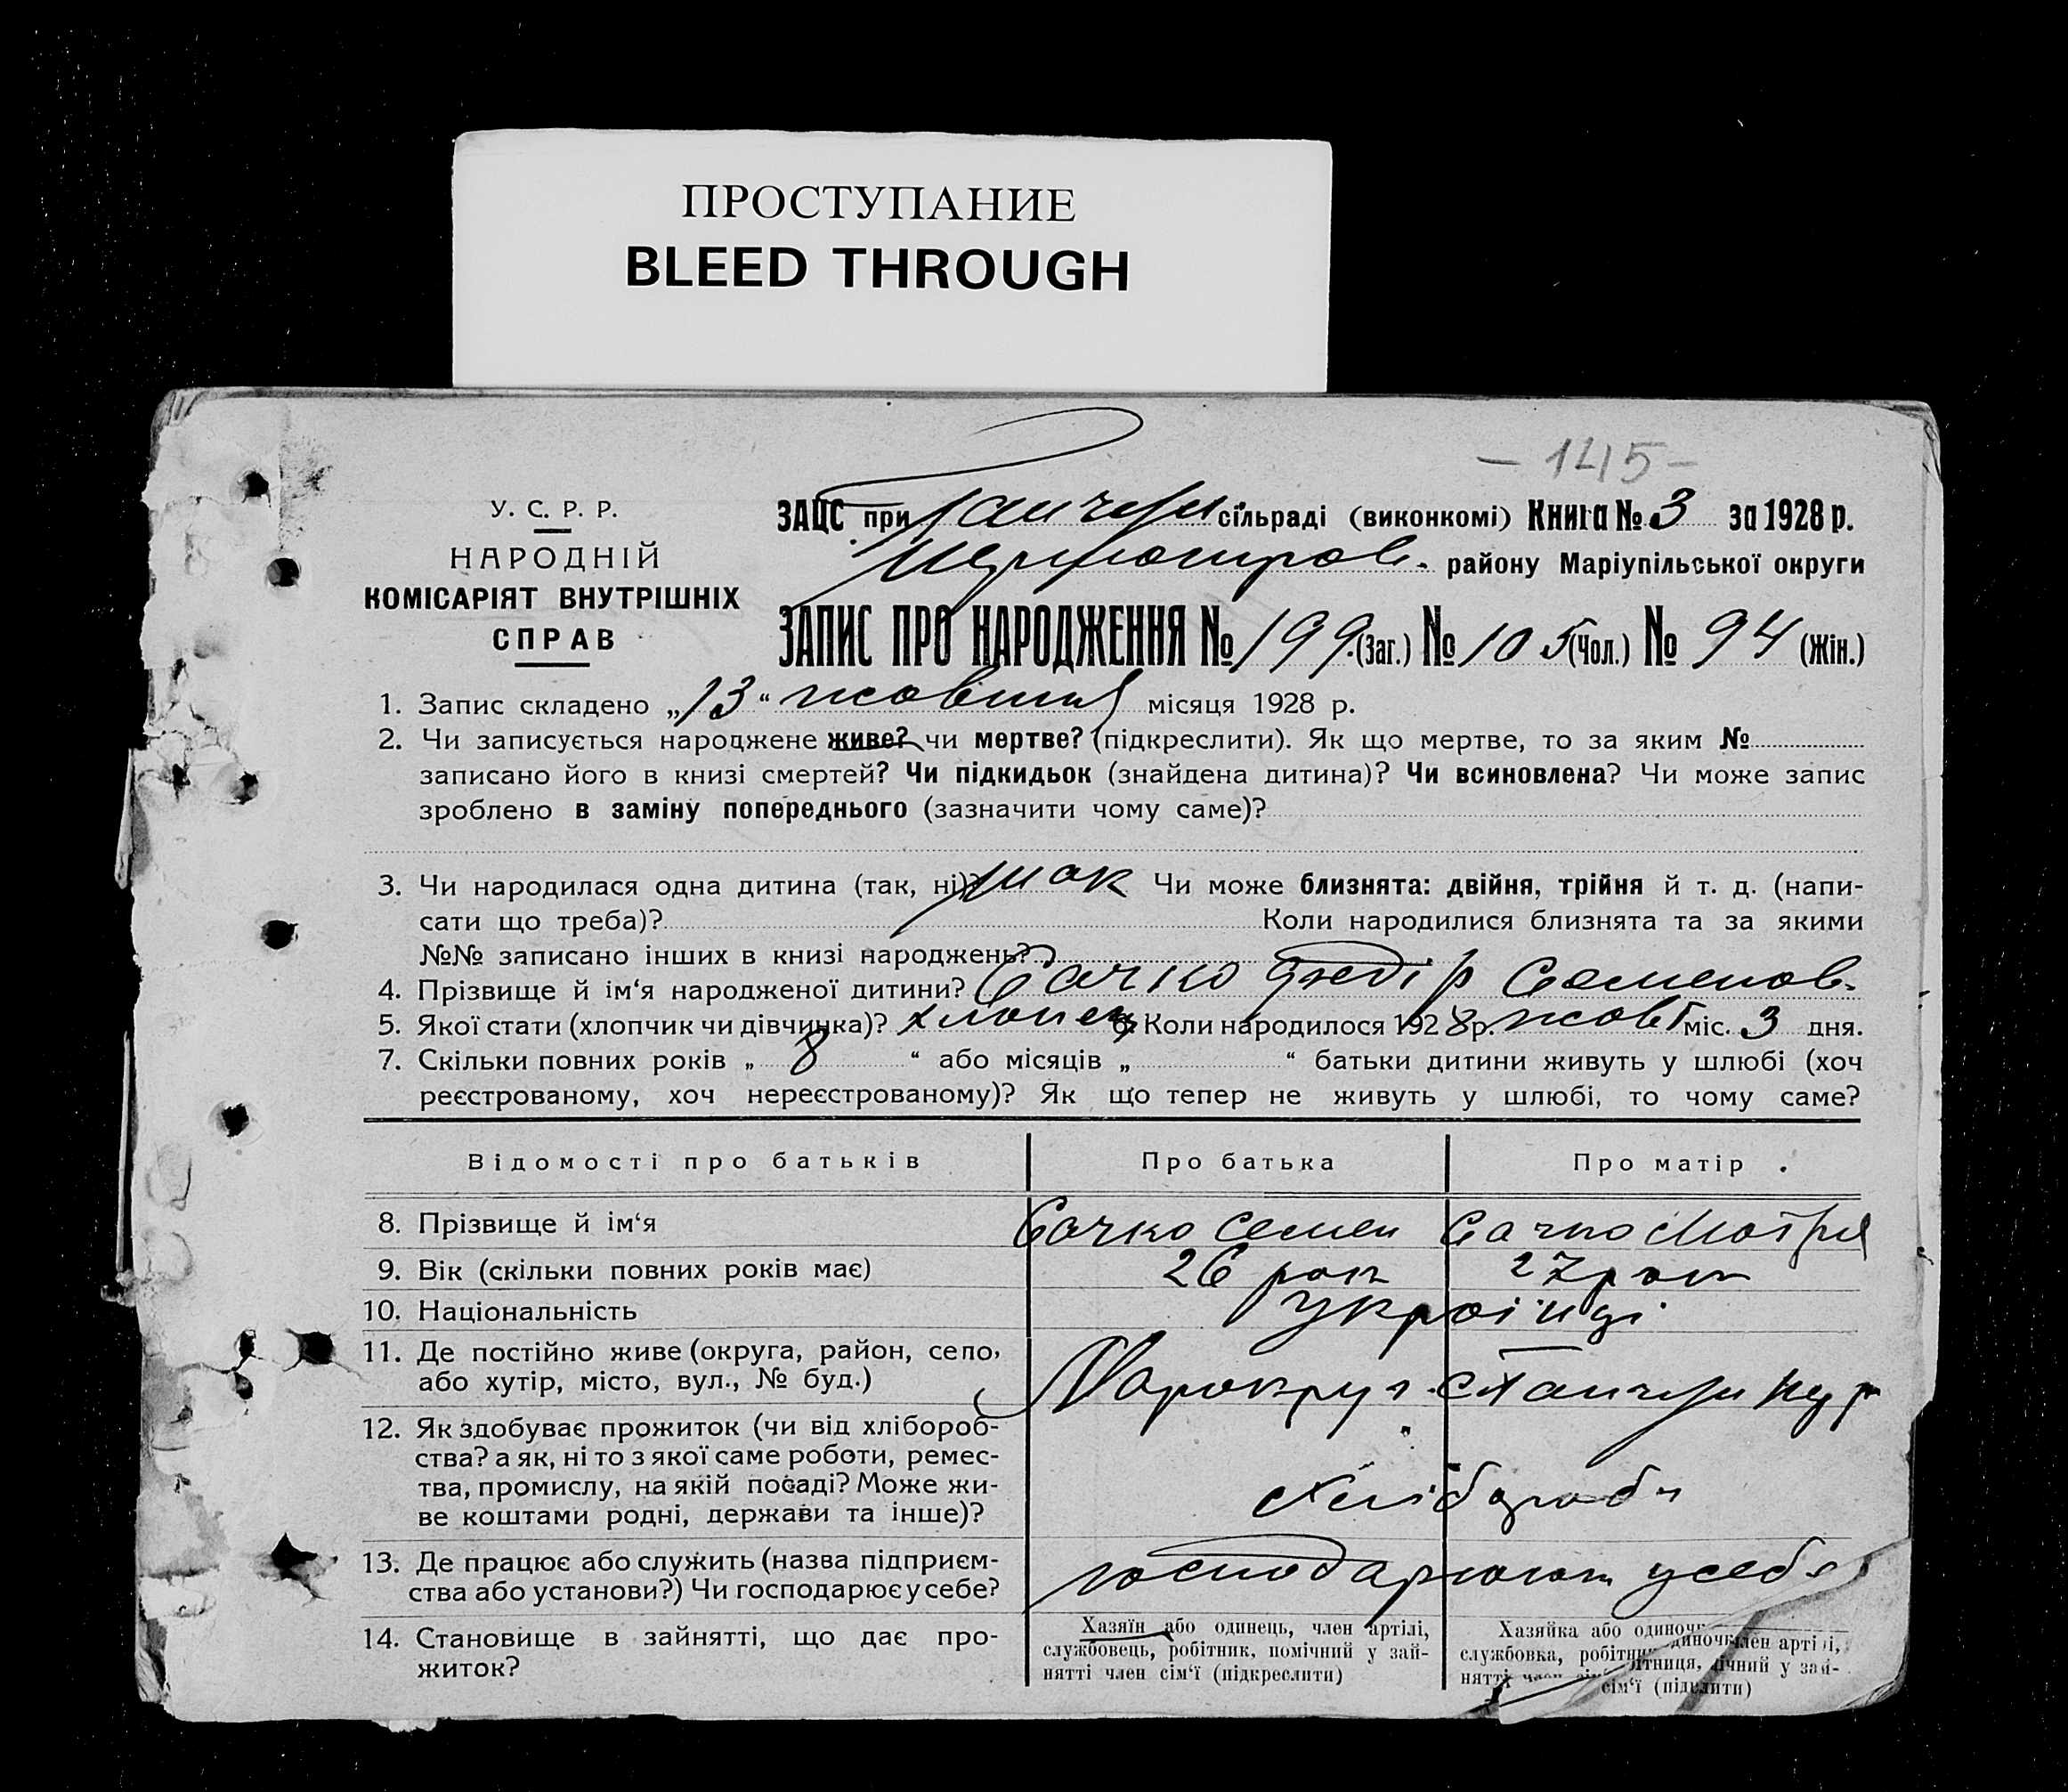 ПРОСТУПАНИЕ
BLEED THROUGH
- 145 -
У. С. Р. Р.
НАРОДНІЙ
КОМІСАРІЯТ ВНУТРІШНІХ
СПРАВ
ЗАЦС при сільраді (виконкомі) Книга № 3 за 1928 р.
району Маріупільської округи
ЗАПИС ПРО НАРОДЖЕННЯ № 199 (Заг.) № 105 (Чол.) № 94 (Жін.)
1. Запис складено „13“ жовтня місяця 1928 р.
2. Чи записується народжене живе? чи мертве? (підкреслити). Як що мертве, то за яким №
записано його в книзі смертей? Чи підкидьок (знайдена дитина)? Чи всиновлена? Чи може запис
зроблено в заміну попереднього (зазначити чому саме)?
3. Чи народилася одна дитина (так, ні)? так Чи може близнята: двійня, трійня й т. д. (напи-
сати що треба)? Коли народилися близнята та за якими
№№ записано інших в книзі народжень?
4. Прізвище й ім‘я народженої дитини? Сачко Федір Семенов.
5. Якої стати (хлопчик чи дівчинка)? хлопец 6. Коли народилося 1928 р. жовт міс. 3 дня.
7. Скільки повних років „ 8 “ або місяців „ “ батьки дитини живуть у шлюбі (хоч
реєстрованому, хоч нереєстрованому)? Як що тепер не живуть у шлюбі, то чому саме?
Відомості про батьків Про батька Про матір
8. Прізвище й ім‘я Сачко Семен Сачко Мотря
9. Вік (скільки повних років має) 26 рок 27 рок
10. Національність українці
11. Де постійно живе (округа, район, село,
або хутір, місто, вул., № буд.)
12. Як здобуває прожиток (чи від хлібороб-
ства? а як, ні то з якої саме роботи, ремес-
тва, промислу, на якій посаді? Може жи-
ве коштами родні, держави та інше)?
Хлібороби
13. Де працює або служить (назва підприєм-
ства або установи?) Чи господарює у себе?
господарюют у себе
14. Становище в зайнятті, що дає про-
житок?
Хазяїн або одинець, член артілі,
службовець, робітник, помічний у зай-
нятті член сім‘ї (підкреслити)
Хазяйка або
службовка,